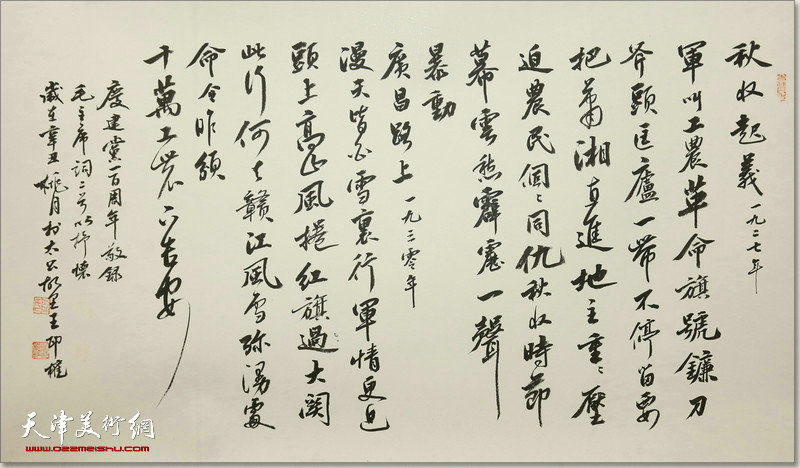 秋收起義 一九二七年
軍叫工農革命旗號鐮刀
斧頭匡廬一帶不停留要
把蕭湘直進地主重々壓
迫農民個々同仇秋收時節
幕雲愁霹靂一聲
暴動
廣昌路上 一九三零年
漫天皆白雪裏行軍情更迫
頭上高山風捲紅旗過大関
此行何去贛江風雪弥漫處
命令昨頒
十萬工農下吉安
慶建黨一百周年敬錄
毛主席詞二首以抒懷
歲在辛丑桃月於太公故里王印權
天津美術網
www.022meishu.com